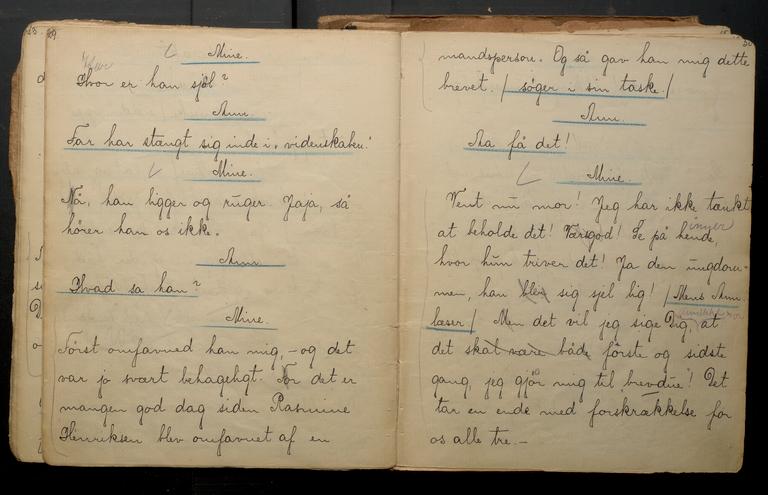 29
Mine.
Hvor er han sjøl?
Ann.
Far har stængt sig inde i „videnskaben."
Mine.
Nå, han ligger og ruger. Jaja, så
hører han os ikke.
Ann.
Hvad sa han?
Mine.
Først omfavned han mig, – og det
var jo svært behageligt. For det er
mangen god dag siden Rasmine
Henriksen blev omfavnet af en
30
mandsperson. Og så gav han mig dette
brevet. / søger i sin taske. /
Ann.
Aa få det!
Mine.
Vent nu mor! Jeg har ikke tænkt
at beholde det! Værsgod! Se på hende,
hvor hun triver det! Ja den ungdom-
men, han blir sig sjel lig! / Mens Ann
læser / Men det vil jeg sige Dig, at
det skal være både første og sidste
gang, jeg gjør mig til brevdue! Det
tar en ende med forskrækkelse for
os alle tre. –